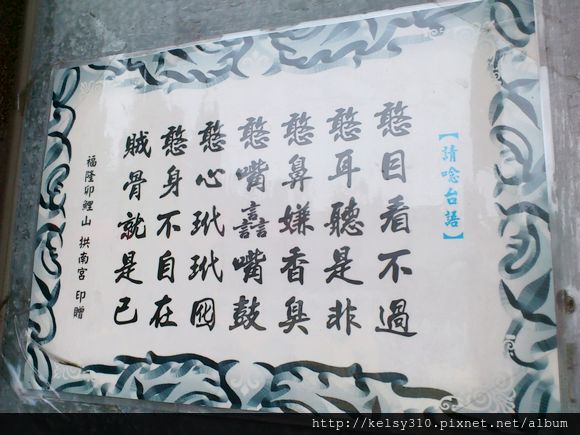 【請唸台語】
憨目看不過
憨耳聽是非
憨鼻嫌香臭
憨嘴𧮦嘴鼓
憨心玳玳
憨身不自在
賊骨就是己
福隆卯鯉山 拱南宮 印贈
http://kelsy310.pixnet.net/album